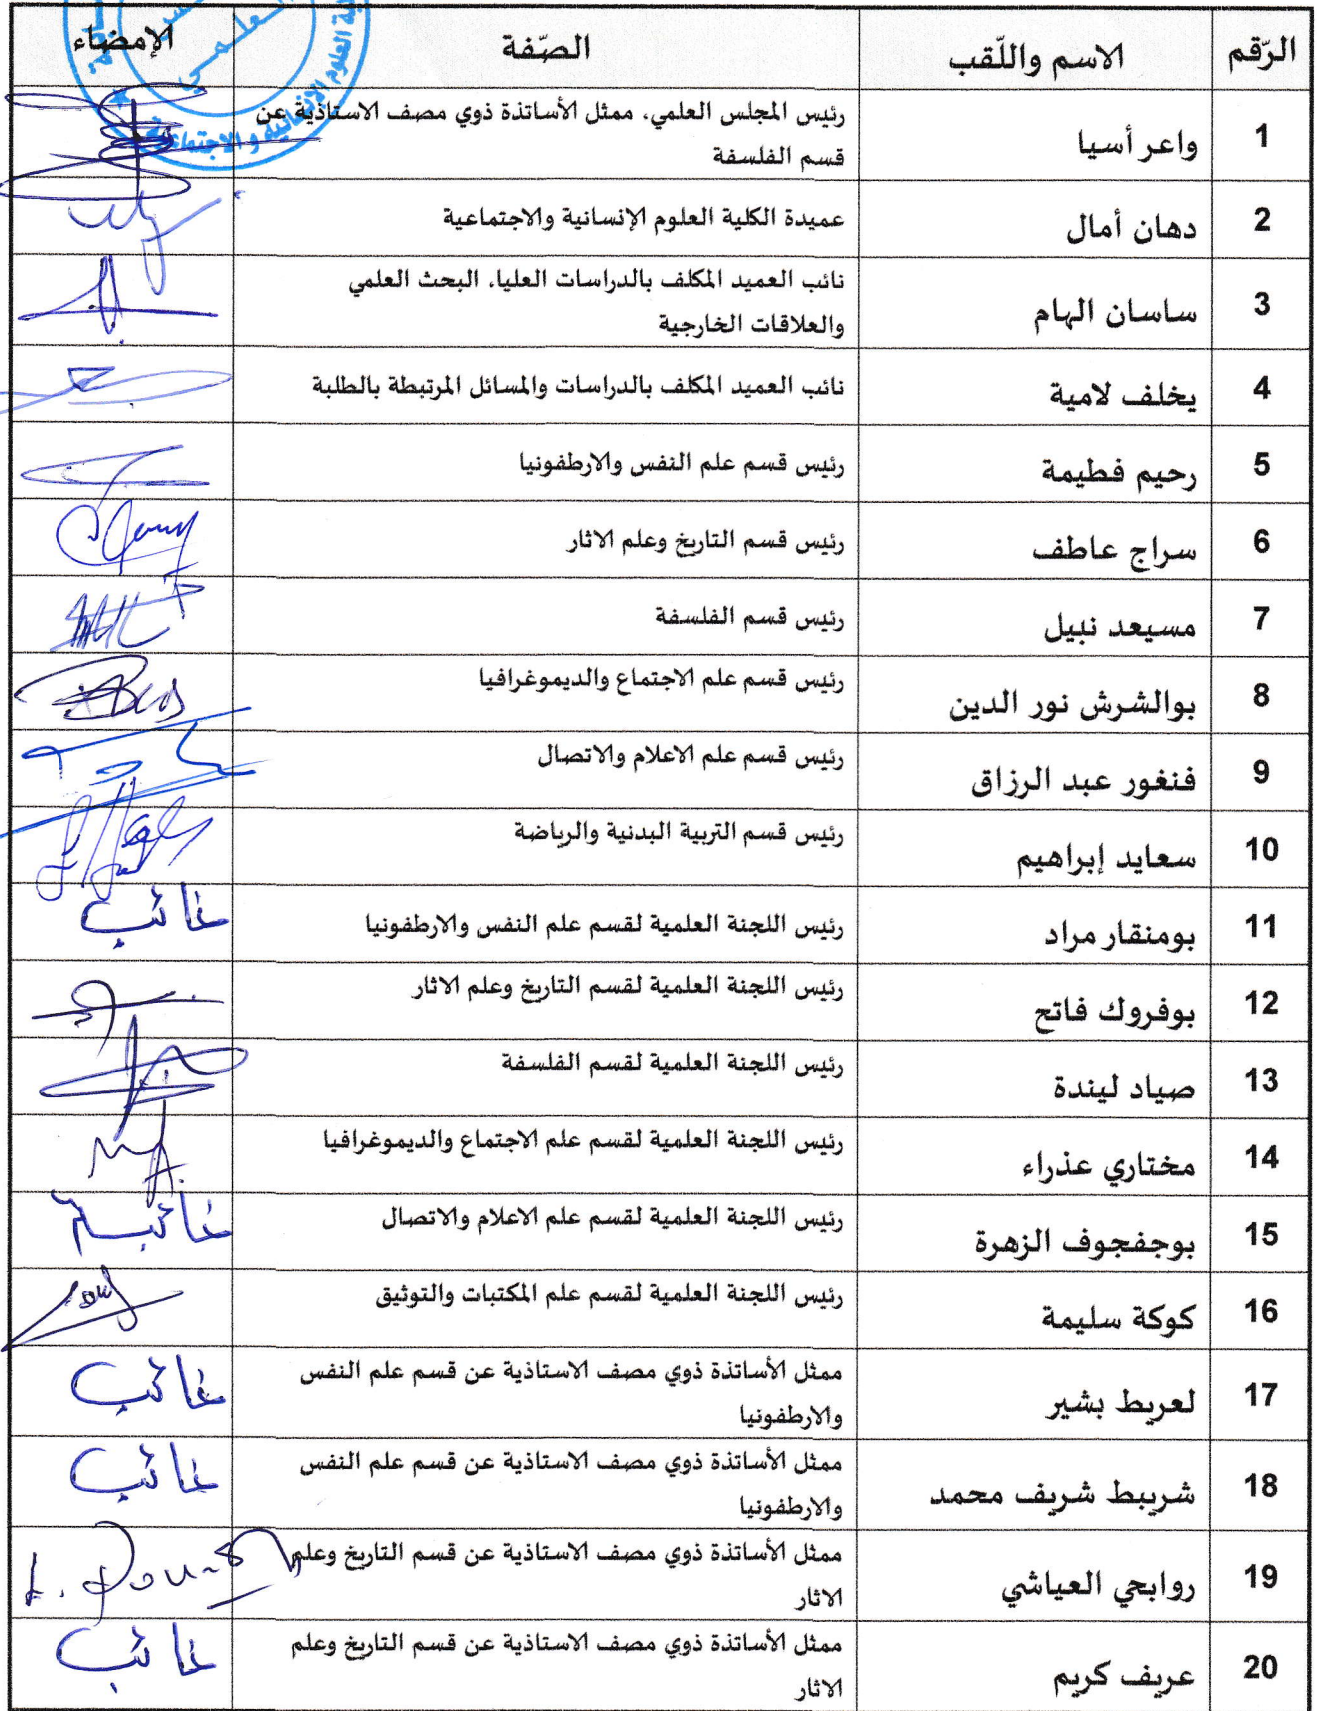 الرّقم الاسم واللّقب الصّفة الإمضاء
1 واعر أسيا رئيس المجلس العلمي، ممثل الأساتذة ذوي مصف الاستاذية عن
قسم الفلسفة
2 دهان أمال عميدة الكلية العلوم الإنسانية والاجتماعية
3 ساسان الهام نائب العميد المكلف بالدراسات العليا، البحث العلمي
والعلاقات الخارجية
4 يخلف لامية نائب العميد المكلف بالدراسات والمسائل المرتبطة بالطلبة
5 رحيم فطيمة رئيس قسم علم النفس والارطفونيا
6 سراج عاطف رئيس قسم التاريخ وعلم الاثار
7 مسيعد نبيل رئيس قسم الفلسفة
8 بوالشرش نور الدين رئيس قسم علم الاجتماع والديموغرافيا
9 فنغور عبد الرزاق رئيس قسم علم الاعلام والاتصال
10 سعايد إبراهيم رئيس قسم التربية البدنية والرياضة
11 بومنقار مراد رئيس اللجنة العلمية لقسم علم النفس والارطفونيا غائب
12 بوفروك فاتح رئيس اللجنة العلمية لقسم التاريخ وعلم الاثار
13 صياد ليندة رئيس اللجنة العلمية لقسم الفلسفة
14 مختاري عذراء رئيس اللجنة العلمية لقسم علم الاجتماع والديموغرافيا
15 بوجفجوف الزهرة رئيس اللجنة العلمية لقسم علم الاعلام والاتصال غائبة
16 كوكة سليمة رئيس اللجنة العلمية لقسم علم المكتبات والتوثيق
17 لعريط بشير ممثل الأساتذة ذوي مصف الاستاذية عن قسم علم النفس غائب
والارطفونيا
18 شريبط شريف محمد ممثل الأساتذة ذوي مصف الاستاذية عن قسم علم النفس غائب
والارطفونيا
19 روابحي العياشي ممثل الأساتذة ذوي مصف الاستاذية عن قسم التاريخ وعلم
الاثار
20 عريف كريم ممثل الأساتذة ذوي مصف الاستاذية عن قسم التاريخ وعلم غائب
الاثار